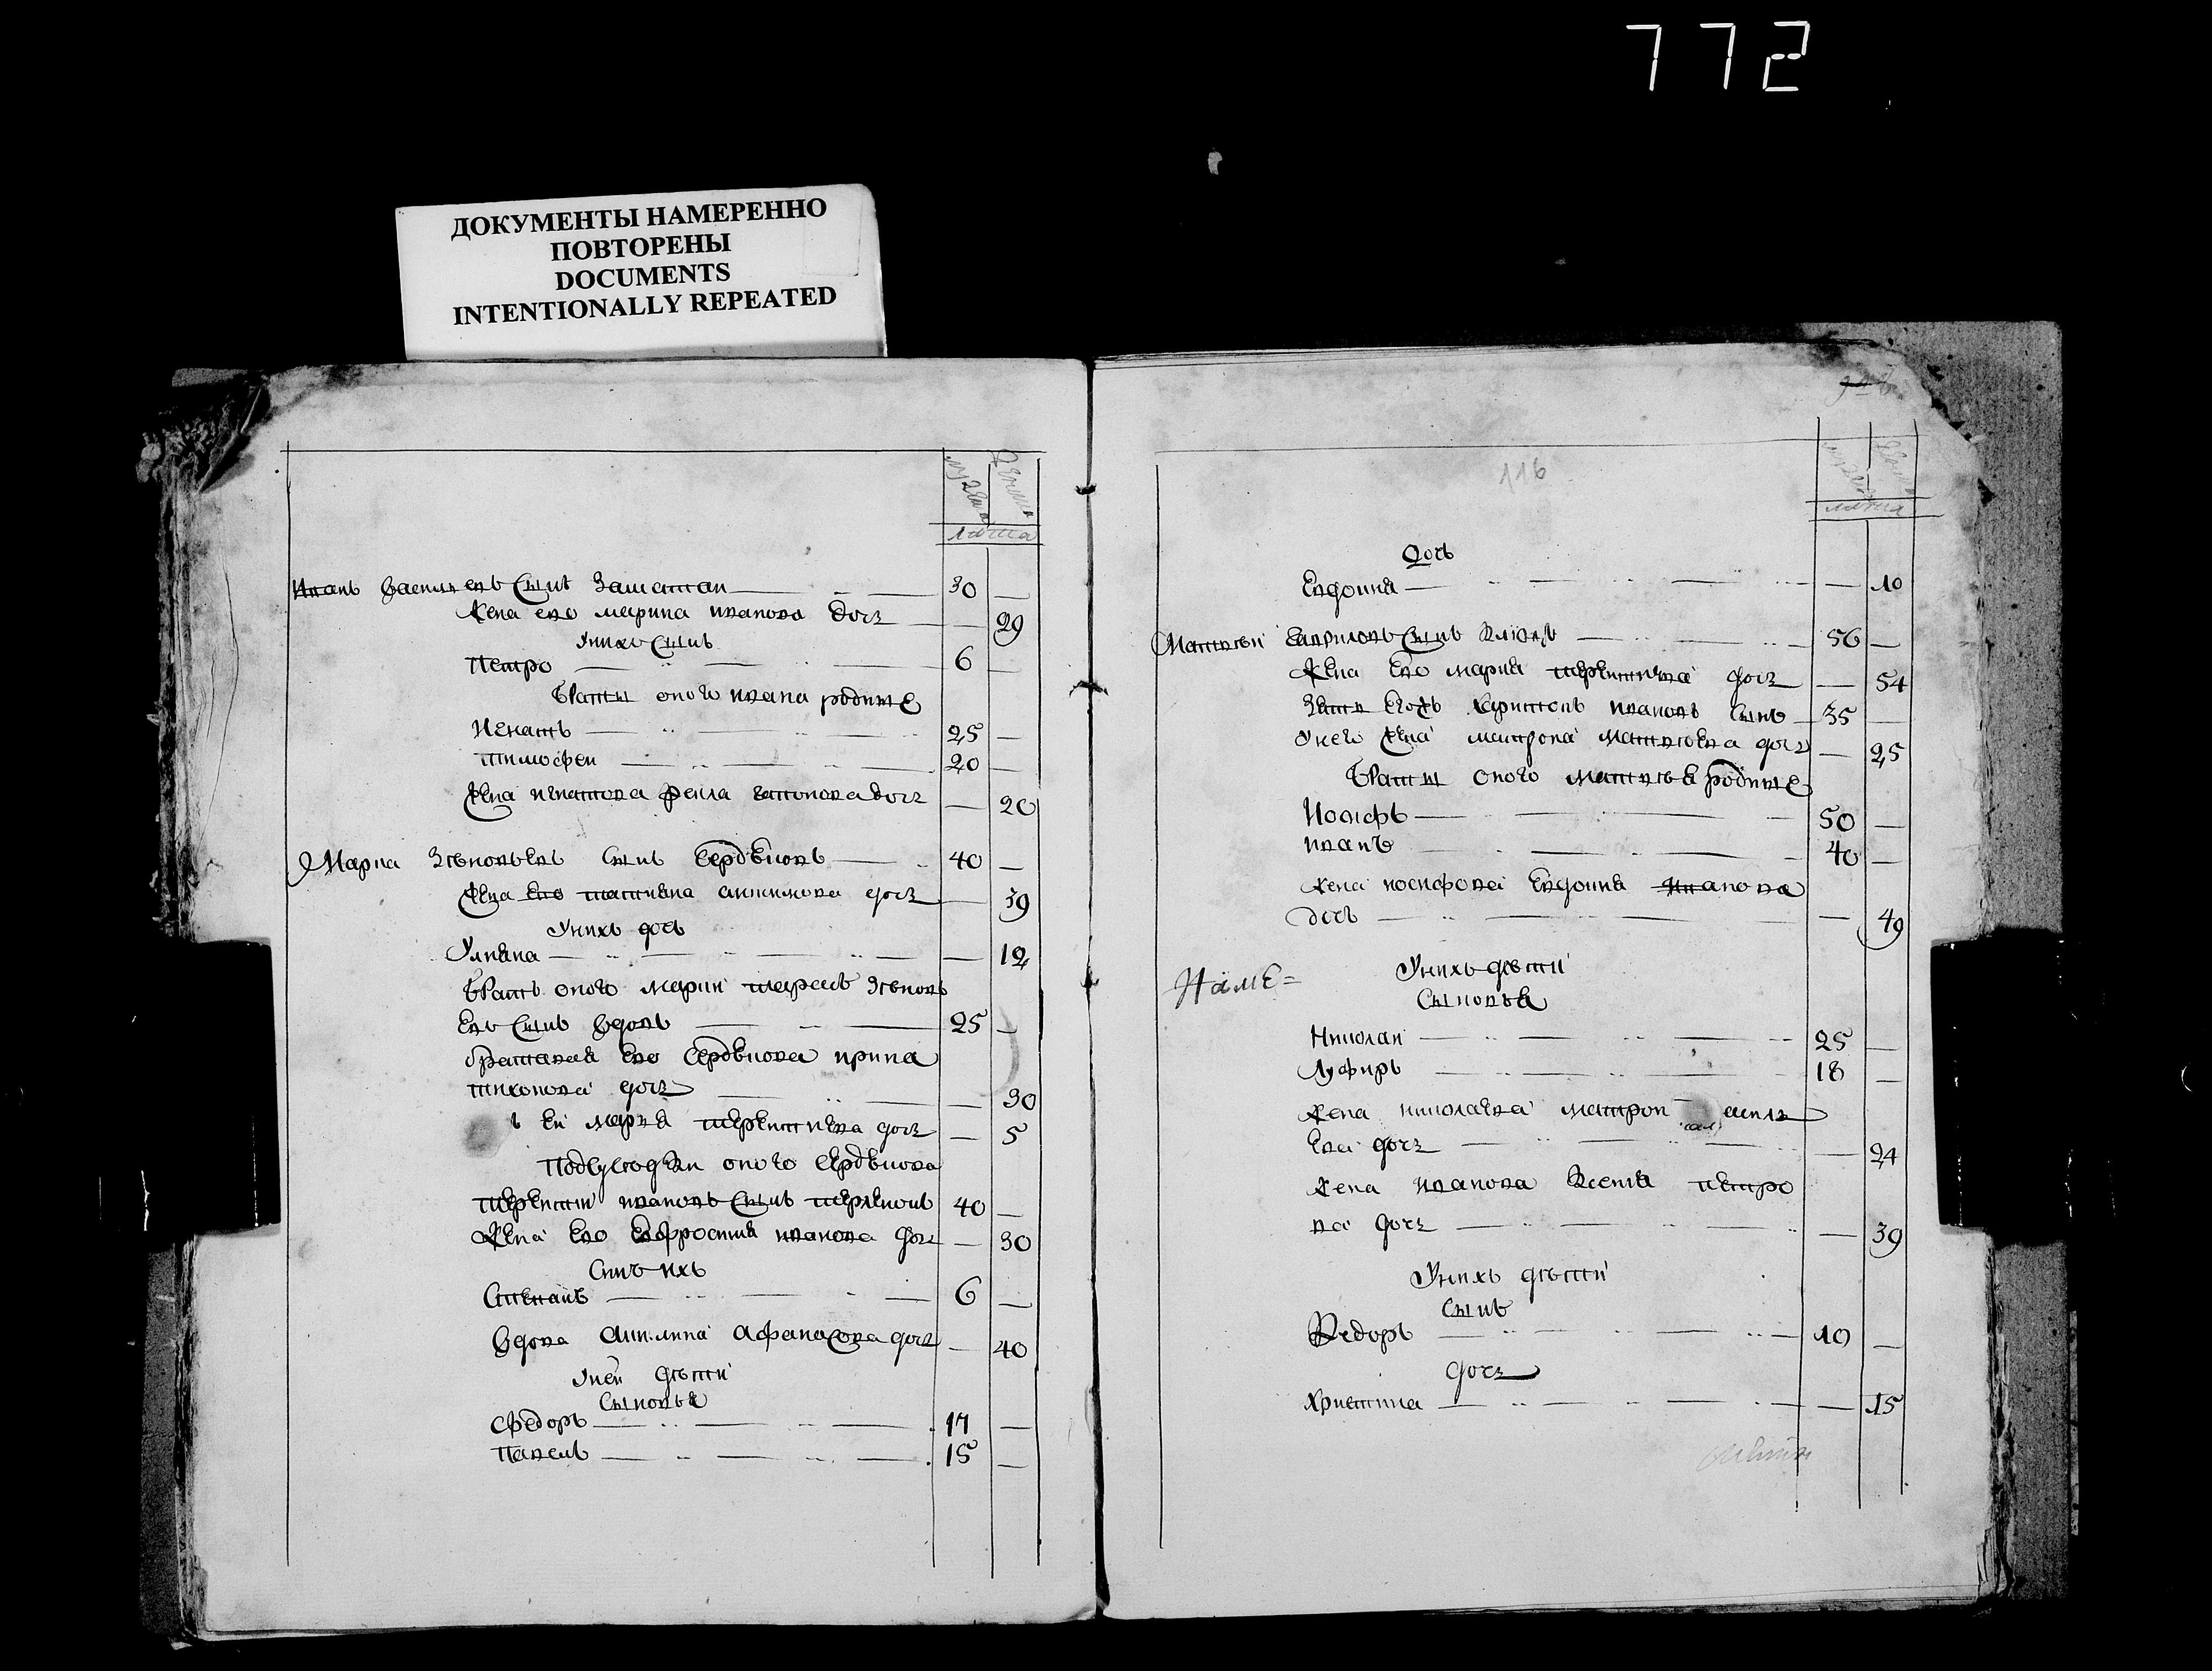 772
ДОКУМЕНТЫ НАМЕРЕННО
ПОВТОРЕНЫ
DOCUMENTS
INTENTIONALLY REPEATED
лѣта
Иванъ Васильевъ сынъ 30
Жена его Марина Иванова дочь 29
У нихъ сынъ
Петро 6
Браты оного Ивана родние
Игнатъ 25
Тимофеи 20
Жена Игнатова дочь 20
Марка Зѣновьевъ сынъ Сердюковъ 40
Жена его Татияна Антипова дочь 39
У нихъ дочь
Улияна 12
Братъ оного Марки Тарасъ Зѣновь
евъ сынъ вдовъ 25
Братовая его Сердюкова Ирина
Тихонова дочь 30
еи Мария Терентиева дочь 5
Подсуседки оного Сердюкова
Терентии Ивановъ сынъ 40
Жена его Евфросиния Иванова дочь 30
Синъ ихъ
Степанъ 6
Вдова Афанасова дочь 40
У неи дѣти
Сыновья
Федоръ 17
Павелъ 15
116
лѣта
Дочь
Евдокия 10
Матвѣи Гавриловъ сынъ 56
Жена его Мария Терентиева дочь 54
Зять Иановъ сынъ 35
У него жена Матрона Матвѣева дочь 25
Браты оного Матвѣя родние
Иосифъ 50
Иванъ 40
Жена Иосифова Евдокия Иванова
дочь 49
Наме=
У нихъ дѣти
Сыновья
Николаи 25
18
Жена Николаева Матрон
ева дочь 24
Жена Иванова Ксения Петро
ва дочь 39
У нихъ дѣти
Сынъ
Федоръ 10
Дочь
Христина 15